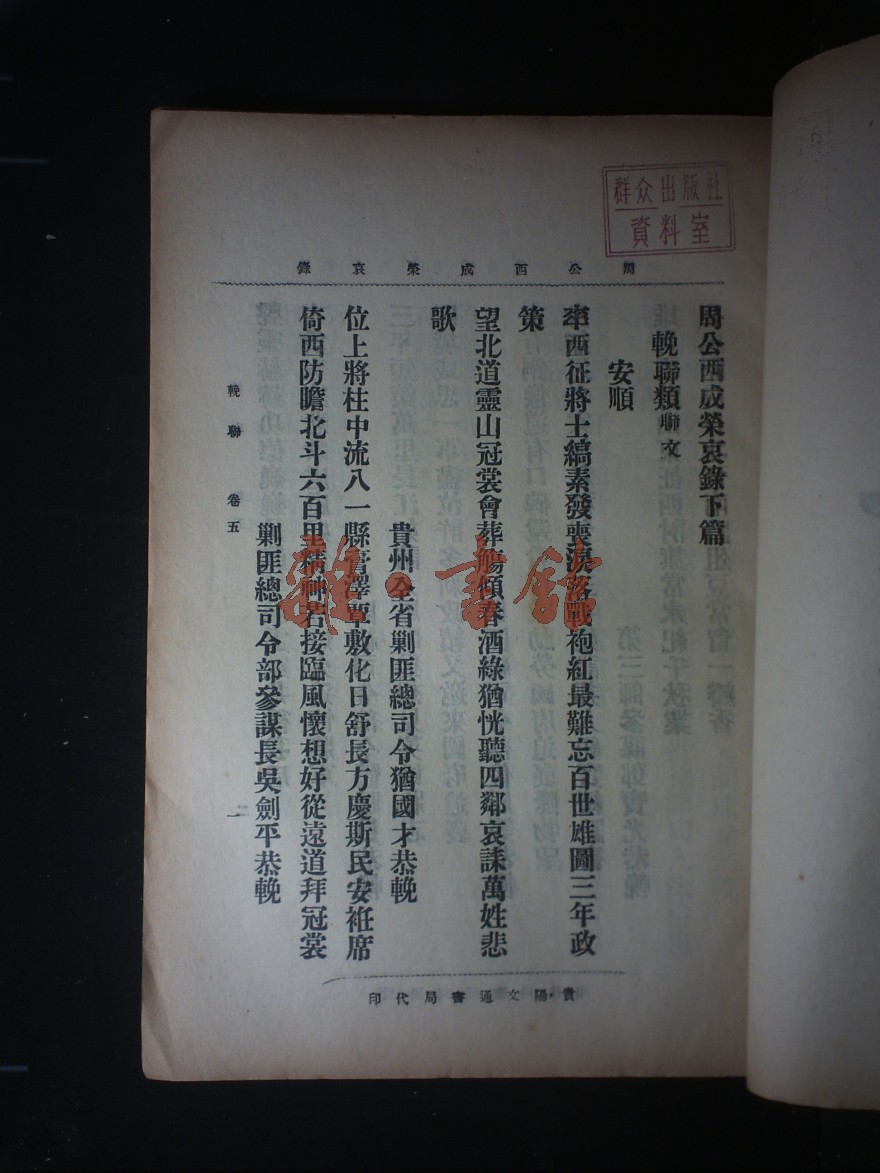 群众出版社
資料室
周公西成榮哀錄
周公西成榮哀錄下篇
輓聯類聯文
安順
率西征將士縞素發喪淚落戰袍紅最難忘百世雄圖三年政
策
望北道靈山冠裳會葬觴傾春酒綠猶恍聽四鄰哀誄萬姓悲
歌
貴州全省剿匪總司令猶國才恭輓
位上將柱中流八一縣膏澤覃敷化日舒長方慶斯民安袵席
倚西防瞻北斗六百里精神若接臨風懷想好從遠道拜冠裳
剿匪總司令部參謀長吳劍平恭輓
輓聯 卷五
一
貴陽文通書局代印
雜·書館